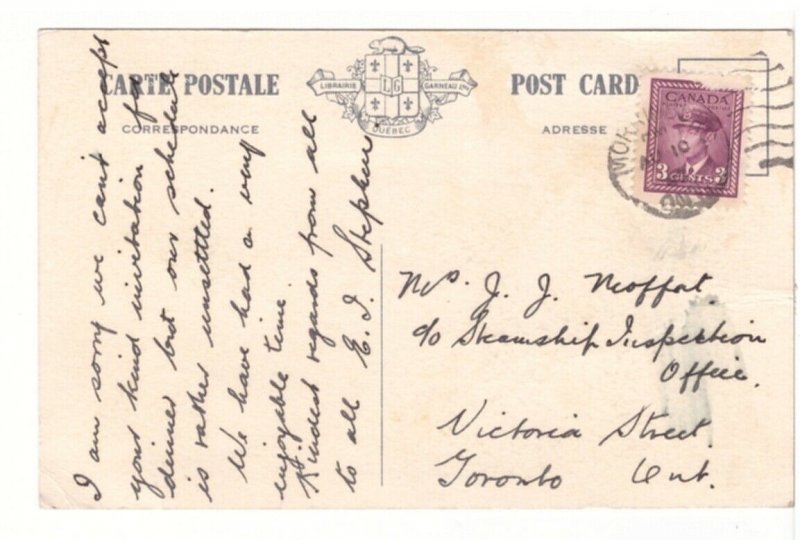 CARTE POSTALE
CORRESPONDANCE
LIBRAIRIE GARNEAU LTÉE
LG
QUÉBEC
POST CARD
ADRESSE
CANADA
3 CENTS 3
I am sorry we can't accept
your kind invitation for
dinner but our schedule
is rather unsettled.
We have had a very
enjoyable time.
Kindest regards from all
to all E. J. Stephen
J. J. Moffat.
c/o Steamship Inspection
Office.
Victoria Street.
Toronto Ont.